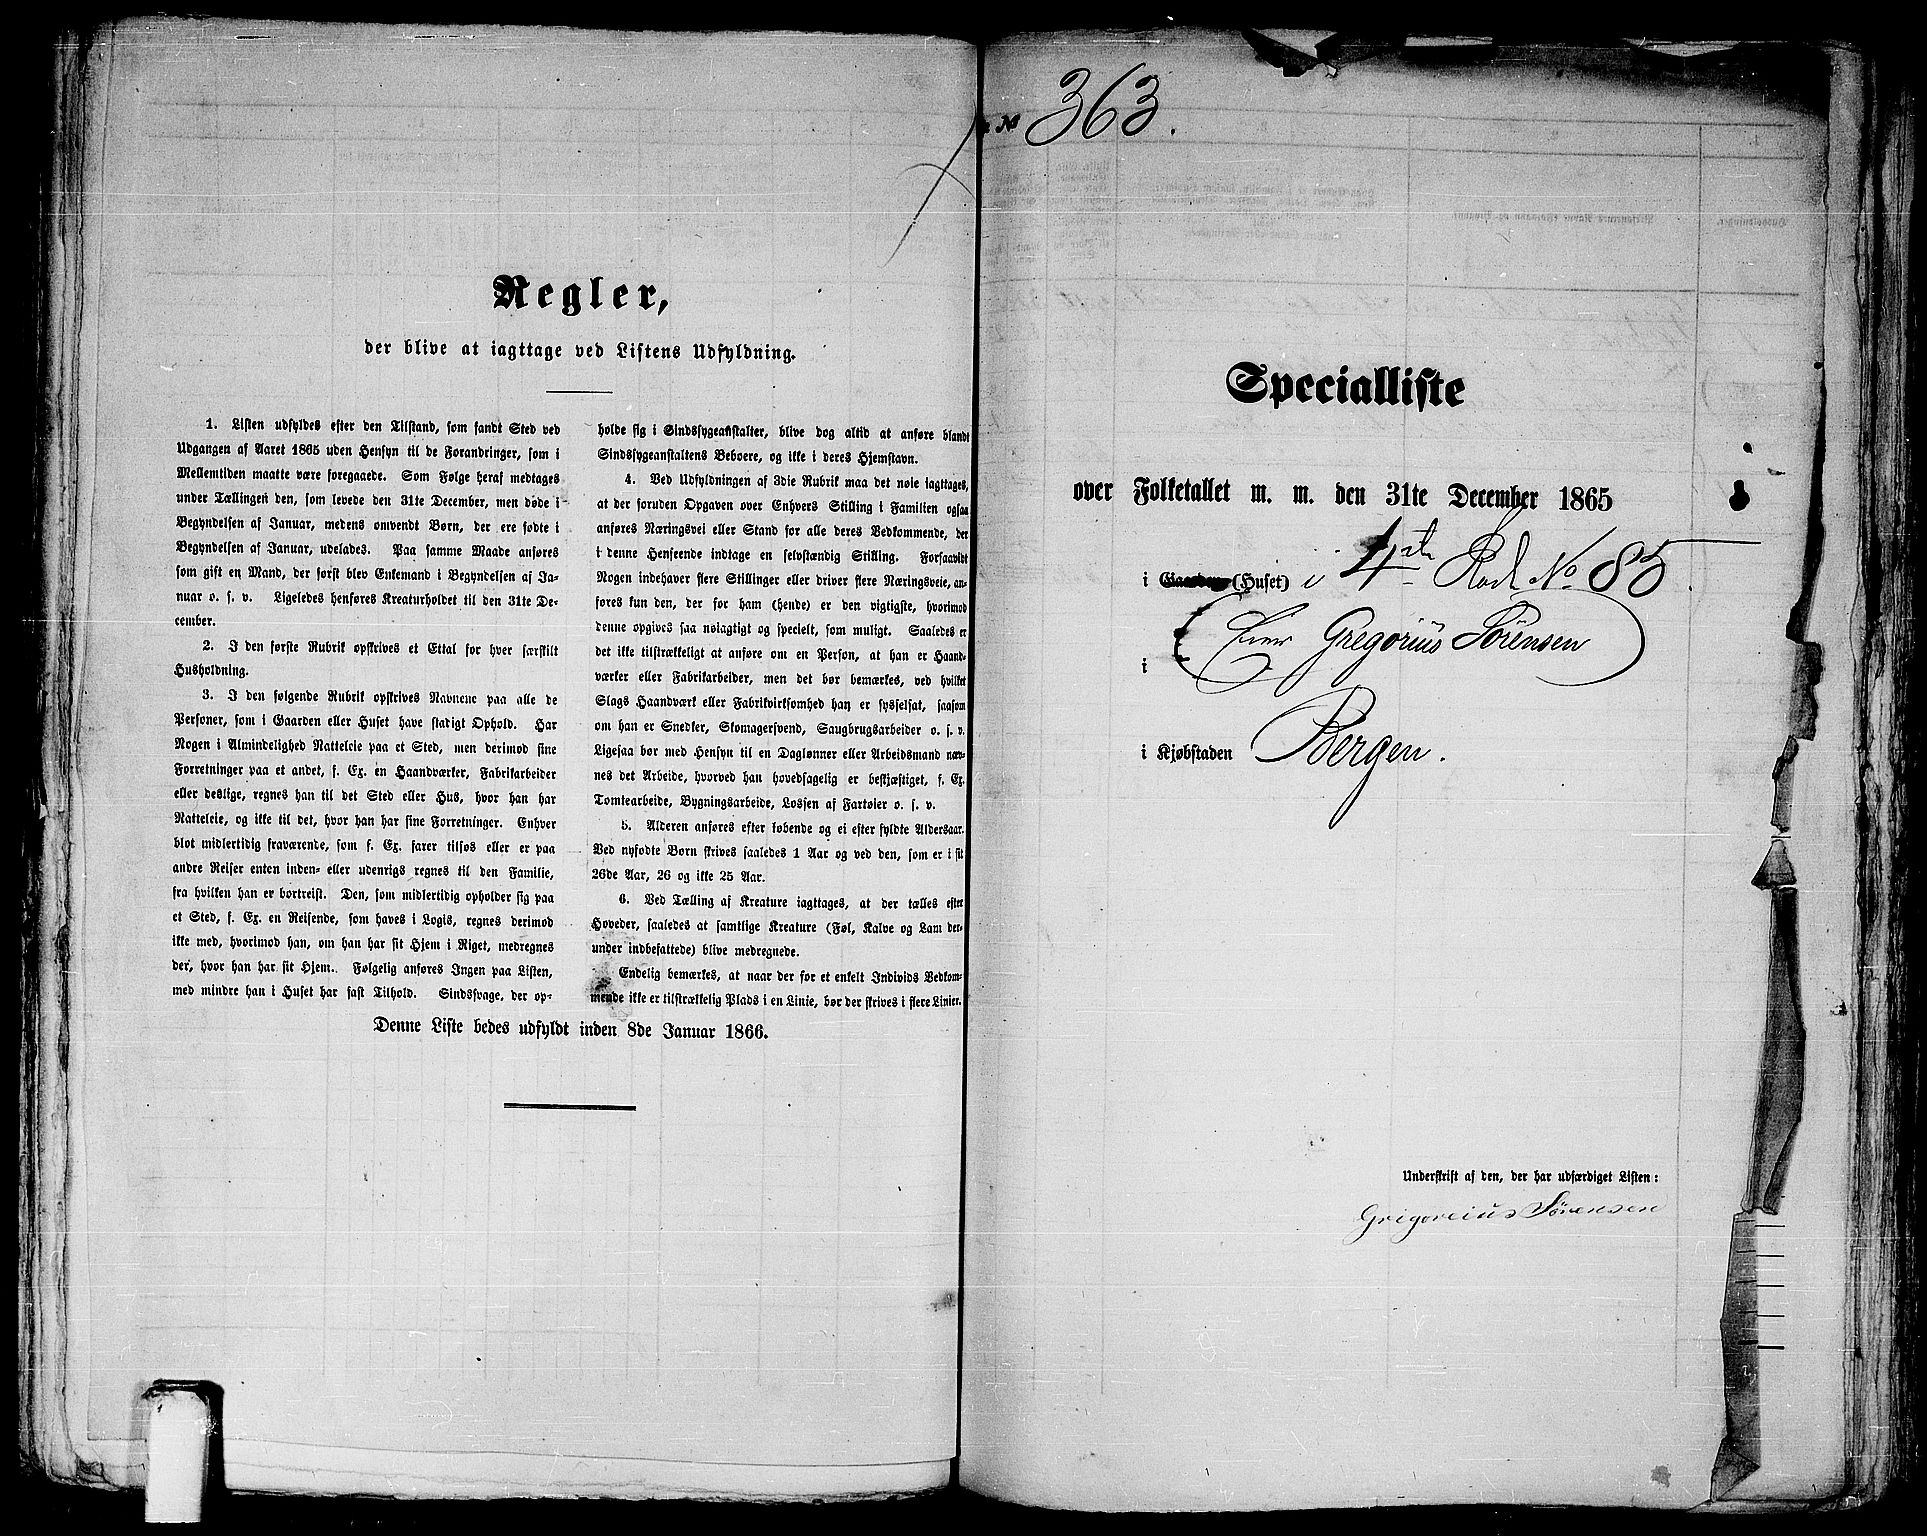 Regler,
der blive at iagttage ved Listens Udfyldning.
1. Listen udfyldes efter den Tilstand, som fandt Sted ved
Udgangen af Aaret 1865 uden Hensyn til de Forandringer, som i
Mellemtiden maatte være foregaaede. Som Følge heraf medtages
under Tællingen den, som levede den 31te December, men døde i
Begyndelsen af Januar, medens omvendt Børn, der ere fødte i
Begyndelsen af Januar, udelades. Paa samme Maade anføres
som gift en Mand, der først blev Enkemand i Begyndelsen af Ja-
nuar o. s. v. Ligeledes henføres Kreaturholdet til den 31te De-
cember.
2. I den første Rubrik opskrives et Ettal for hver særskilt
Husholdning.
3. I den følgende Rubrik opskrives Navnene paa alle de
Personer, som i Gaarden eller Huset have stadigt Ophold. Har
Nogen i Almindelighed Natteleie paa et Sted, men derimod sine
Forretninger paa et andet, f. Ex. en Haandværker, Fabrikarbeider
eller deslige, regnes han til det Sted eller Hus, hvor han har
Natteleie, og ikke til det, hvor han har sine Forretninger. Enhver
blot midlertidig fraværende, som f. Ex. farer tilsøs eller er paa
andre Reiser enten inden- eller udenrigs regnes til den Familie,
fra hvilken han er bortreist. Den, som midlertidig opholder sig paa
et Sted, f. Ex. en Reisende, som haves i Logis, regnes derimod
ikke med, hvorimod han, om han har sit Hjem i Riget, medregnes
der, hvor han har sit Hjem. Følgelig anføres Ingen paa Listen,
med mindre han i Huset har fast Tilhold. Sindssvage, der op-
holde sig i Sindssygeanstalter, blive dog altid at anføre blandt
Sindssygeanstaltens Beboere, og ikke i deres Hjemstavn.
4. Ved Udfyldningen af 3die Rubrik maa det nøie iagttages,
at der foruden Opgaven over Enhvers Stilling i Familien ogsaa
anføres Næringsvei eller Stand for alle deres Vedkommende, der
i denne Henseende indtage en selvstændig Stilling. Forsaavidt
Nogen indehaver flere Stillinger eller driver flere Næringsveie, an-
føres kun den, der for ham (hende) er den vigtigste, hvorimod
denne opgives saa nøiagtigt og specielt, som muligt. Saaledes er
det ikke tilstrækkeligt at anføre om en Person, at han er Haand-
værker eller Fabrikarbeider, men det bør bemærkes, ved hvilket
Slags Haandværk eller Fabrikvirksomhed han er sysselsat, saasom
om han er Snedker, Skomagersvend, Saugbrugsarbeider o. s. v.
Ligesaa bør med Hensyn til en Daglønner eller Arbeidsmand næv-
nes det Arbeide, hvorved han hovedsagelig er beskjæftiget, f. Ex.
Tomtearbeide, Bygningsarbeide, Losjen af Fartøier o. s. v.
5. Alderen anføres efter løbende og ei efter fyldte Aldersaar.
Ved nyfødte Børn skrives saaledes 1 Aar og ved den, som er i sit
26de Aar, 26 og ikke 25 Aar.
6. Ved Tælling af Kreature iagttages, at der tælles efter
Hoveder, saaledes at samtlige Kreature (Føl, Kalve og Lam der-
under indbefattede) blive medregnede.
Endelig bemærkes, at naar der for et enkelt Individs Vedkom-
mende ikke er tilstrækkelig Plads i en Linie, bør der skrives i flere Linier.
Denne Liste bedes udfyldt inden 8de Januar 1866.
№ 363.
Specialliste
over Folketallet m. m. den 31te December 1865
i Gaarden (Huset) i 4de Rode No 85
i Gregorius Sörensen
i Kjøbstaden Bergen.
Underskrift af den, der har udfærdiget Listen:
Grigoreius Sörensen